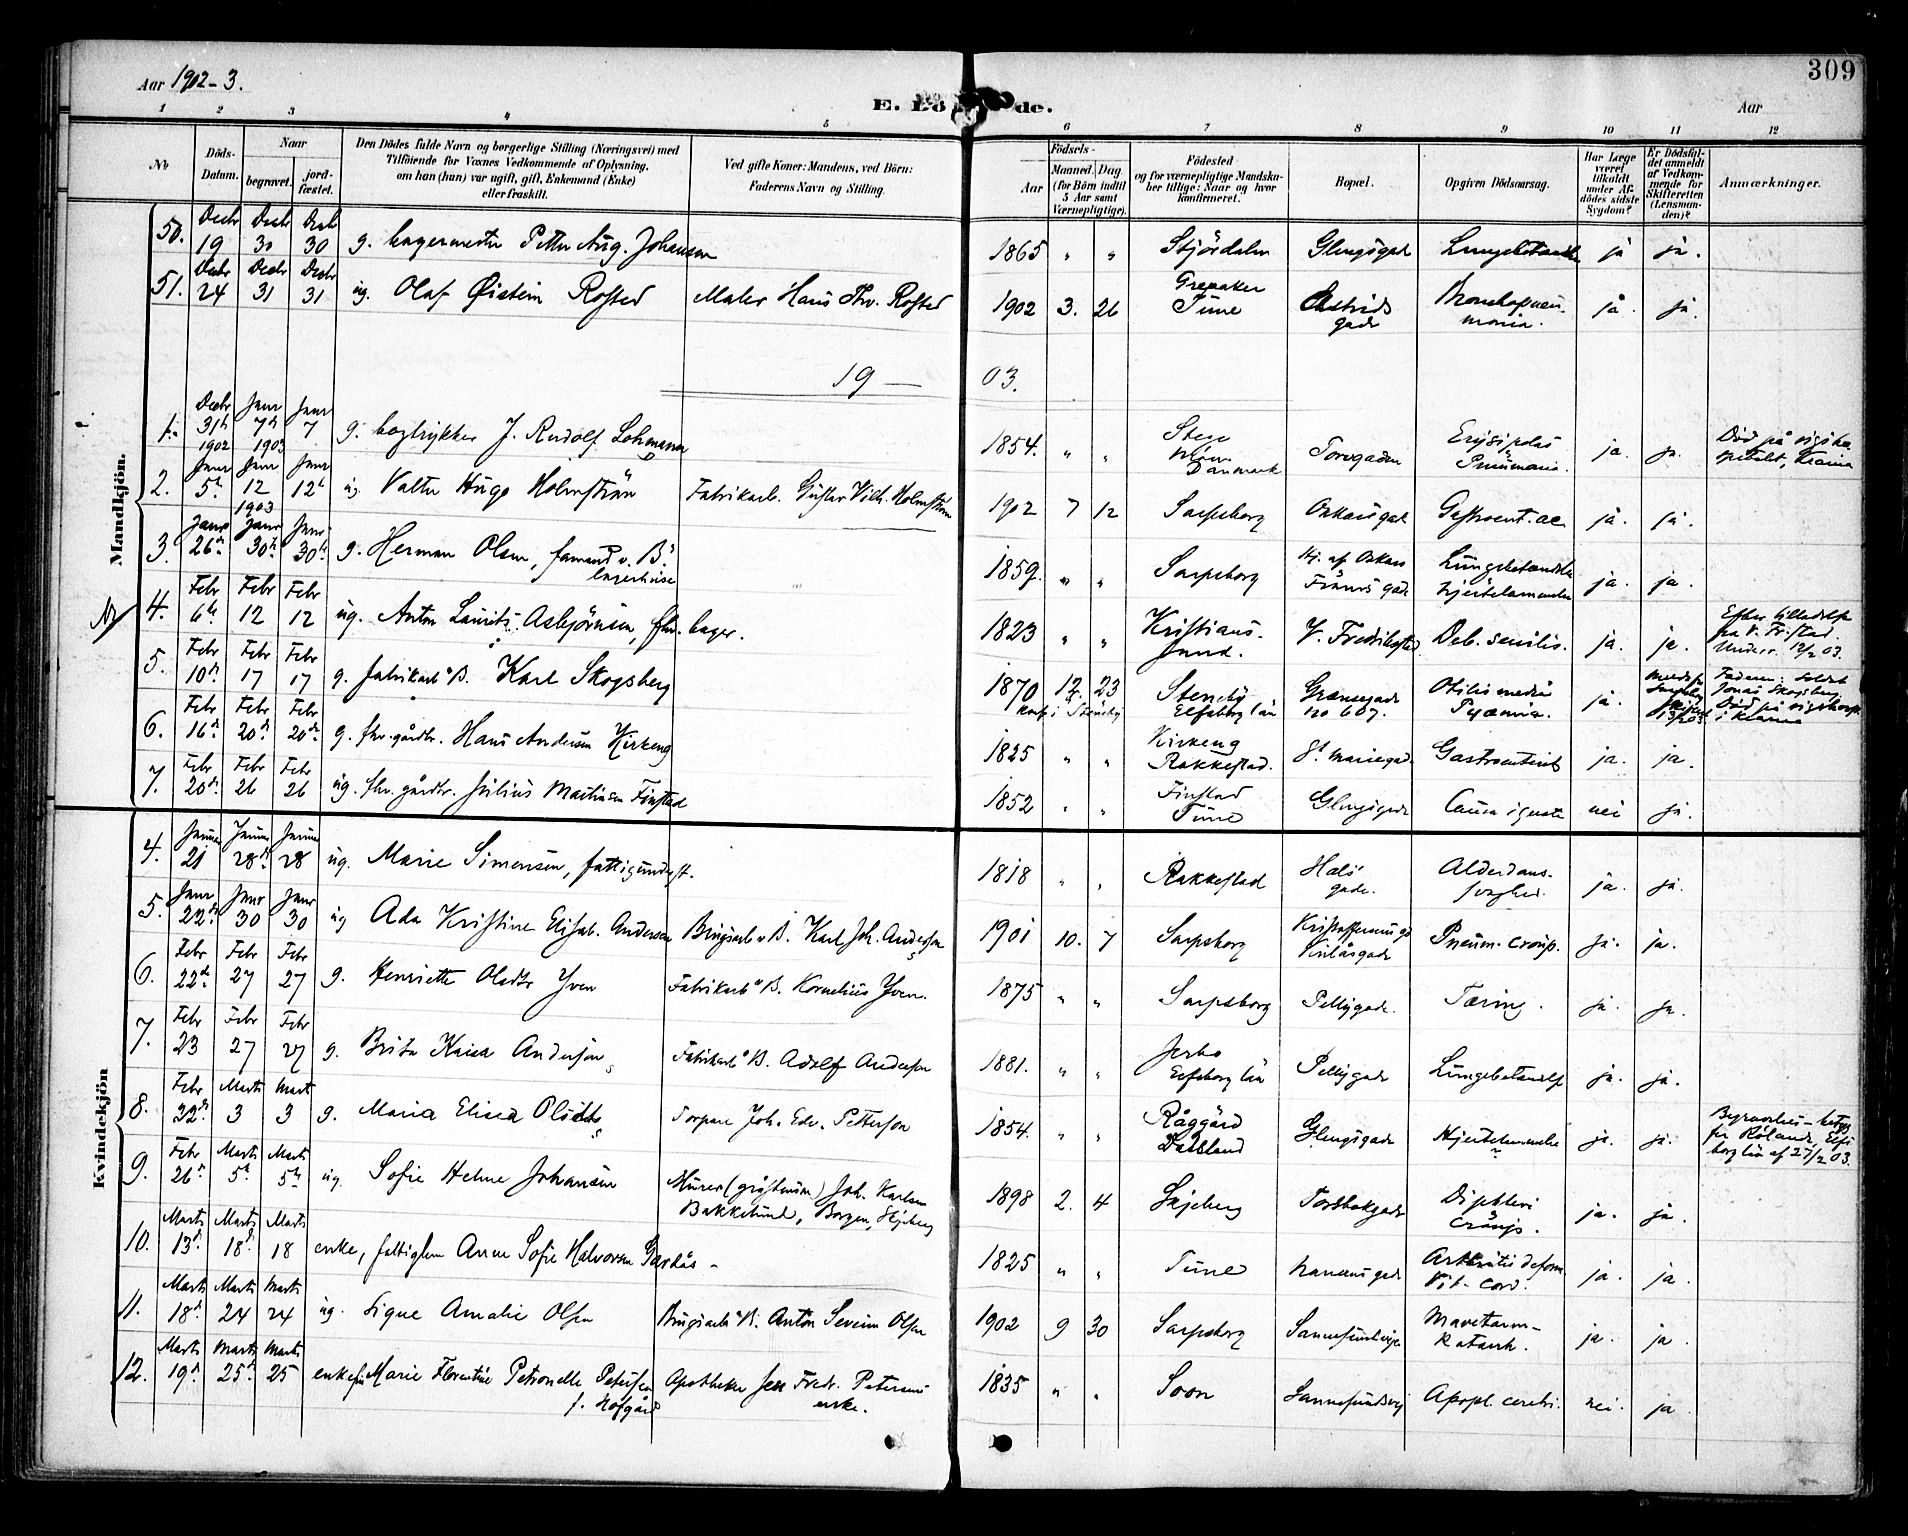 Aar 1902-3.
309
E. Dö de.
Aar
1 2 3 4 5 6 7 8 9 10 11 12
No
Döds-Datum.
Naar
begravet.
jord-fæstet.
Den Dödes fulde Navn og borgerlige Stilling (Næringsvei) med
Tilföiende for Voxnes Vedkommende af Oplysning,
om han (hun) var ugift, gift, Enkemand (Enke)
eller fraskilt.
Ved gifte Koner: Mandens, ved Börn:
Faderens Navn og Stilling.
Födsels-
Aar
Maaned. Dag
(for Börn indtil
5 Aar samt
Værnepligtige).
Födested
og for værnepligtige Mandska-
ber tillige: Naar og hvor
konfirmeret.
Bopæl.
Opgiven Dödsaarsag.
Har Læge
været
tilkaldt
under Af-
dödes sidste
Sygdom?
Er Dödsfal-
det anmeldt
af Vedkom-
mende for
Skifteretten
(Lensman-
den)?
Anmærkninger.
Mandkjön.
50. Decbr 19 Decbr 30 Decbr 30 g. bagermester Petter Aug. Johansen 1865 " " Stjördalen Glengsgad Lungebetændelse ja ja.
51. Decbr 24 Decbr 31 Decbr 31 ug. Olaf Øistein Rostad Maler Hans Thv. Rostad 1902 3. 26 Greaaker Tune Astrids gade Bronchopneu-monia. ja. ja.
19 — 03.
1. Decbr 31te 1902 Janr 7de 1903 Janr 7 g. bogtrykker J. Rudolf Lohmann 1854. " " Stege Möen Danmark Torvgaden Erysipelas Pneumonia. ja. ja. Död på
2. Janr 5te Janr 12 1903 Janr 12te ug. Valter Hugo Holmström Fabrikarb. Gustav Vilh. Holmström 1902 7 12 Sarpsborg Oskarsgad Gastroent. ac. ja. ja.
3. Janr 26de Janr 30te Janr 30te g. Herman Olsen, formand v. B.s lagerhuse 1859. " " Sarpsborg Hj. af Oskars Lungebetændelse Hjertelammelse ja. ja.
4. Febr 6te Febr 12 Febr 12 ug. Anton Laurits Asbjörnsen, fhv. bager. 1823 " " Kristians-sund. V. Fredrikstad Deb. senilis. ja. ja. Efter tilladelse fra V. Fr.stad. Underr. 12/2 03.
5. Febr 10de Febr 17 Febr 17 g. fabrikarb. B. Karl Skogsberg 1870 12. 23 konf. i Steneby Steneby Elfsborg län Grænsegade no 607. Otitis media Pyæmia. ja. Faderen: Soldat Jonas Skogsberg. Död på
6. Febr 16de Febr 20de Febr 20de g. fhv. gårdbr. Hans Andersen Kirkeng 1825 " " Kirkeng Rakkestad. St. Mariegad. Gastroenterit ja. ja.
7. Febr 20de Febr 26 Febr 26 ug. fhv. gårdbr. Julius Martinsen Finstad 1852 " " Finstad Tune Glengsgade Causa ignota nei ja.
Kvindekjön
4. Januar 21 Januar 28de Januar 28 ug. Marie Simensen, fattigunderst. 1818 " " Rakkestad Hals gade. Alderdoms-svaghed. ja. ja.
5. Janr 22de Janr 30 Janr 30 ug Ada Kristine Elisab. Andersen Brugsarb. v. B. Karl Joh. Andersson 1901 10. 7 Sarpsborg Pneum. croup. ja. ja.
6. Febr 22de Febr 27 Febr 27 g. Henriette Olsdtr Yven Fabrikarb. B. Kornelius Yven. 1875 " " Sarpsborg Pellygade. Tæring. ja. ja.
7. Febr 23 Febr 27 Febr 27 g. Brita Kaisa Andersson Fabrikarb. B. Adolf Andersson 1881. " " Jerbo Elfsborg län Pellygade Lungebetændelse ja. ja.
8. Febr 22de Marts 3 Marts 3 g. Maria Elisa Olsdtr Torpare Joh. Edv. Petterson 1854. " " Råggärd Dalsland Glengsgade Hjertelammelse ja. ja. for Rölanda, Elfs-borg län af 27/2 03.
9. Febr 26de Marts 5te Marts 5te ug. Sofie Helene Johansen Murer Joh. Karlsen Bakkelund, Borgen, Skjeberg 1898 2. 4 Skjeberg Torsbekgade Difteri Croup. ja. ja.
10. Marts 13de Marts 18de Marts 18 enke, fattiglem Anne Sofie Halvorsen 1825 " " Tune Hansensgade Arthritis deform. Vit. cord. ja. ja.
11. Marts 18de Marts 24 Marts 24 ug. Signe Amalie Olsen Brugsarb. B. Anton Severin Olsen 1902 9 30 Sarpsborg Sannesundsvejen Mavetarm-katarrh. ja. ja
12. Marts 19de Marts 25de Marts 25 enkefru Marie Florentine Petronelle Petersen f. Hofgård Apotheker Jess Fredr. Petersens enke. 1835 " " Soon Sannesundsvej Apopl. cerebri. nei. ja.